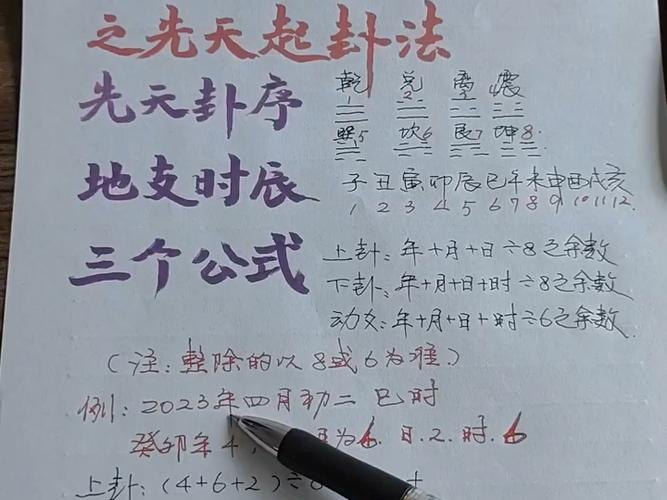 之先天起卦法
先天卦序
乾 兑 离 震
1 2 3 4
巽5 坎6 艮7 坤8
地支时辰
子丑寅卯辰巳午未申酉戌亥
1 2 3 4 5 6 7 8 9 10 11 12
三个公式
上卦:年+月+日÷8之余数
下卦:年+月+日+时÷8之余数
动爻:年+月+日+时÷6之余数
(注:整除的以8或6为准)
例:2023年四月初二 巳时
癸卯年4, 月为6. 日.2. 时.6
上卦:(4+6+2)÷8